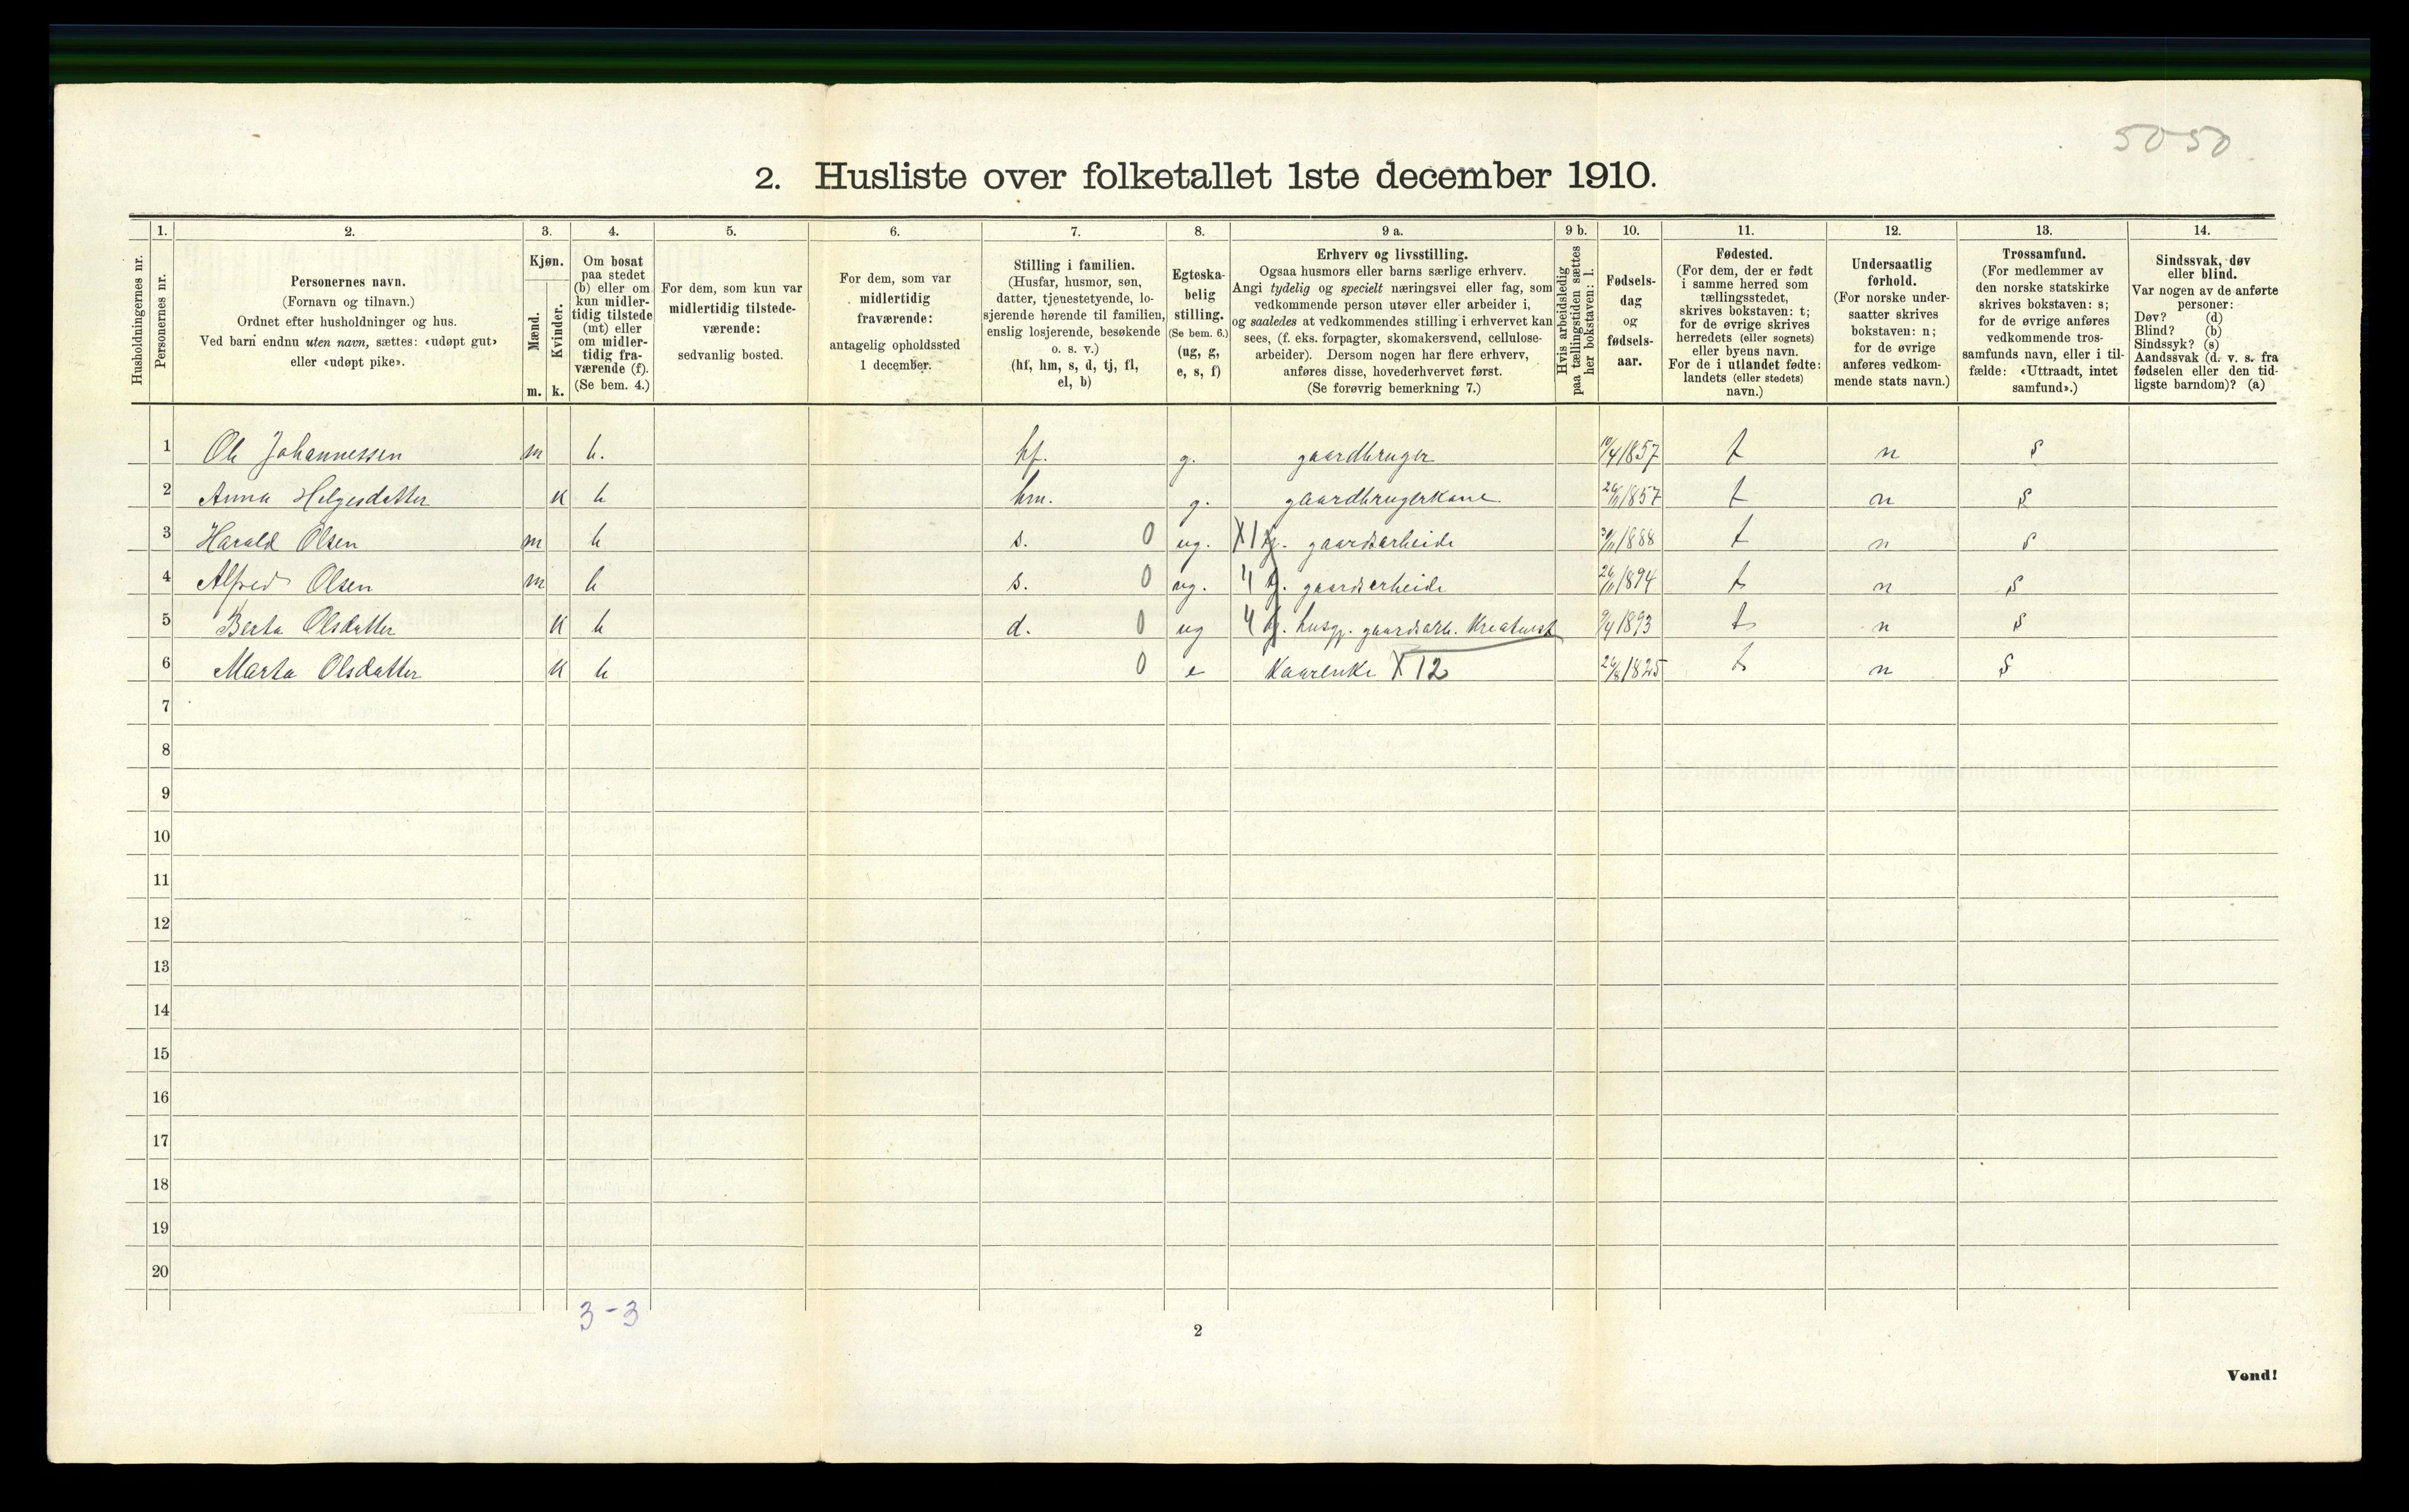 50-50
2. Husliste over folketallet 1ste december 1910.
Husholdningernes nr.
1.
Personernes nr.
2.
Personernes navn.
(Fornavn og tilnavn.)
Ordnet efter husholdninger og hus.
Ved barn endnu uten navn, sættes: «udøpt gut»
eller «udøpt pike».
3.
Kjøn.
Mænd.
Kvinder.
m. k.
4.
Om bosat
paa stedet
(b) eller om
kun midler-
tidig tilstede
(mt) eller
om midler-
tidig fra-
værende (f).
(Se bem. 4.)
5.
For dem, som kun var
midlertidig tilstede-
værende:
sedvanlig bosted.
6.
For dem, som var
midlertidig
fraværende:
antagelig opholdssted
1 december.
7.
Stilling i familien.
(Husfar, husmor, søn,
datter, tjenestetyende, lo-
sjerende hørende til familien,
enslig losjerende, besøkende
o. s. v.)
(hf, hm, s, d, tj, fl,
el, b)
8.
Egteska-
belig
stilling.
(Se bem. 6.)
(ug, g,
e, s, f)
9 a.
Erhverv og livsstilling.
Ogsaa husmors eller barns særlige erhverv.
Angi tydelig og specielt næringsvei eller fag, som
vedkommende person utøver eller arbeider i,
og saaledes at vedkommendes stilling i erhvervet kan
sees, (f. eks. forpagter, skomakersvend, cellulose-
arbeider). Dersom nogen har flere erhverv,
anføres disse, hovederhvervet først.
(Se forøvrig bemerkning 7.)
9 b.
Hvis arbeidsledig
paa tællingstiden sættes
her bokstaven: l.
10.
Fødsels-
dag
og
fødsels-
aar.
11.
Fødested.
(For dem, der er født
i samme herred som
tællingsstedet,
skrives bokstaven: t;
for de øvrige skrives
herredets (eller sognets)
eller byens navn.
For de i utlandet fødte:
landets (eller stedets)
navn.)
12.
Undersaatlig
forhold.
(For norske under-
saatter skrives
bokstaven: n;
for de øvrige
anføres vedkom-
mende stats navn.)
13.
Trossamfund.
(For medlemmer av
den norske statskirke
skrives bokstaven: s;
for de øvrige anføres
vedkommende tros-
samfunds navn, eller i til-
fælde: «Uttraadt, intet
samfund».)
14.
Sindssvak, døv
eller blind.
Var nogen av de anførte
personer:
Døv? (d)
Blind? (b)
Sindssyk? (s)
Aandssvak (d. v. s. fra
fødselen eller den tid-
ligste barndom)? (a)
1 Ole Johannessen m b. hf. g. gaardbruger 10/4 1857 t n s
2 Anna Helgesdatter k b hm. g. gaardbrugerkone 1857 t n s
3 Harald Olsen m b s. 0 ug. X1 gaardsarbeide 1888 t n s
4 Alfred Olsen m b s. 0 ug. " gaardsarbeide 1894 t n s
5 Berta Olsdatter k b d. 0 ug " husgj. gaardsarb. Kreaturst 9/4 1893 t n s
6 Marta Olsdatter k b 0 e Kaarenke X12 1825 t n s
7
8
9
10
11
12
13
14
15
16
17
18
19
20
3-3
2
Vend!